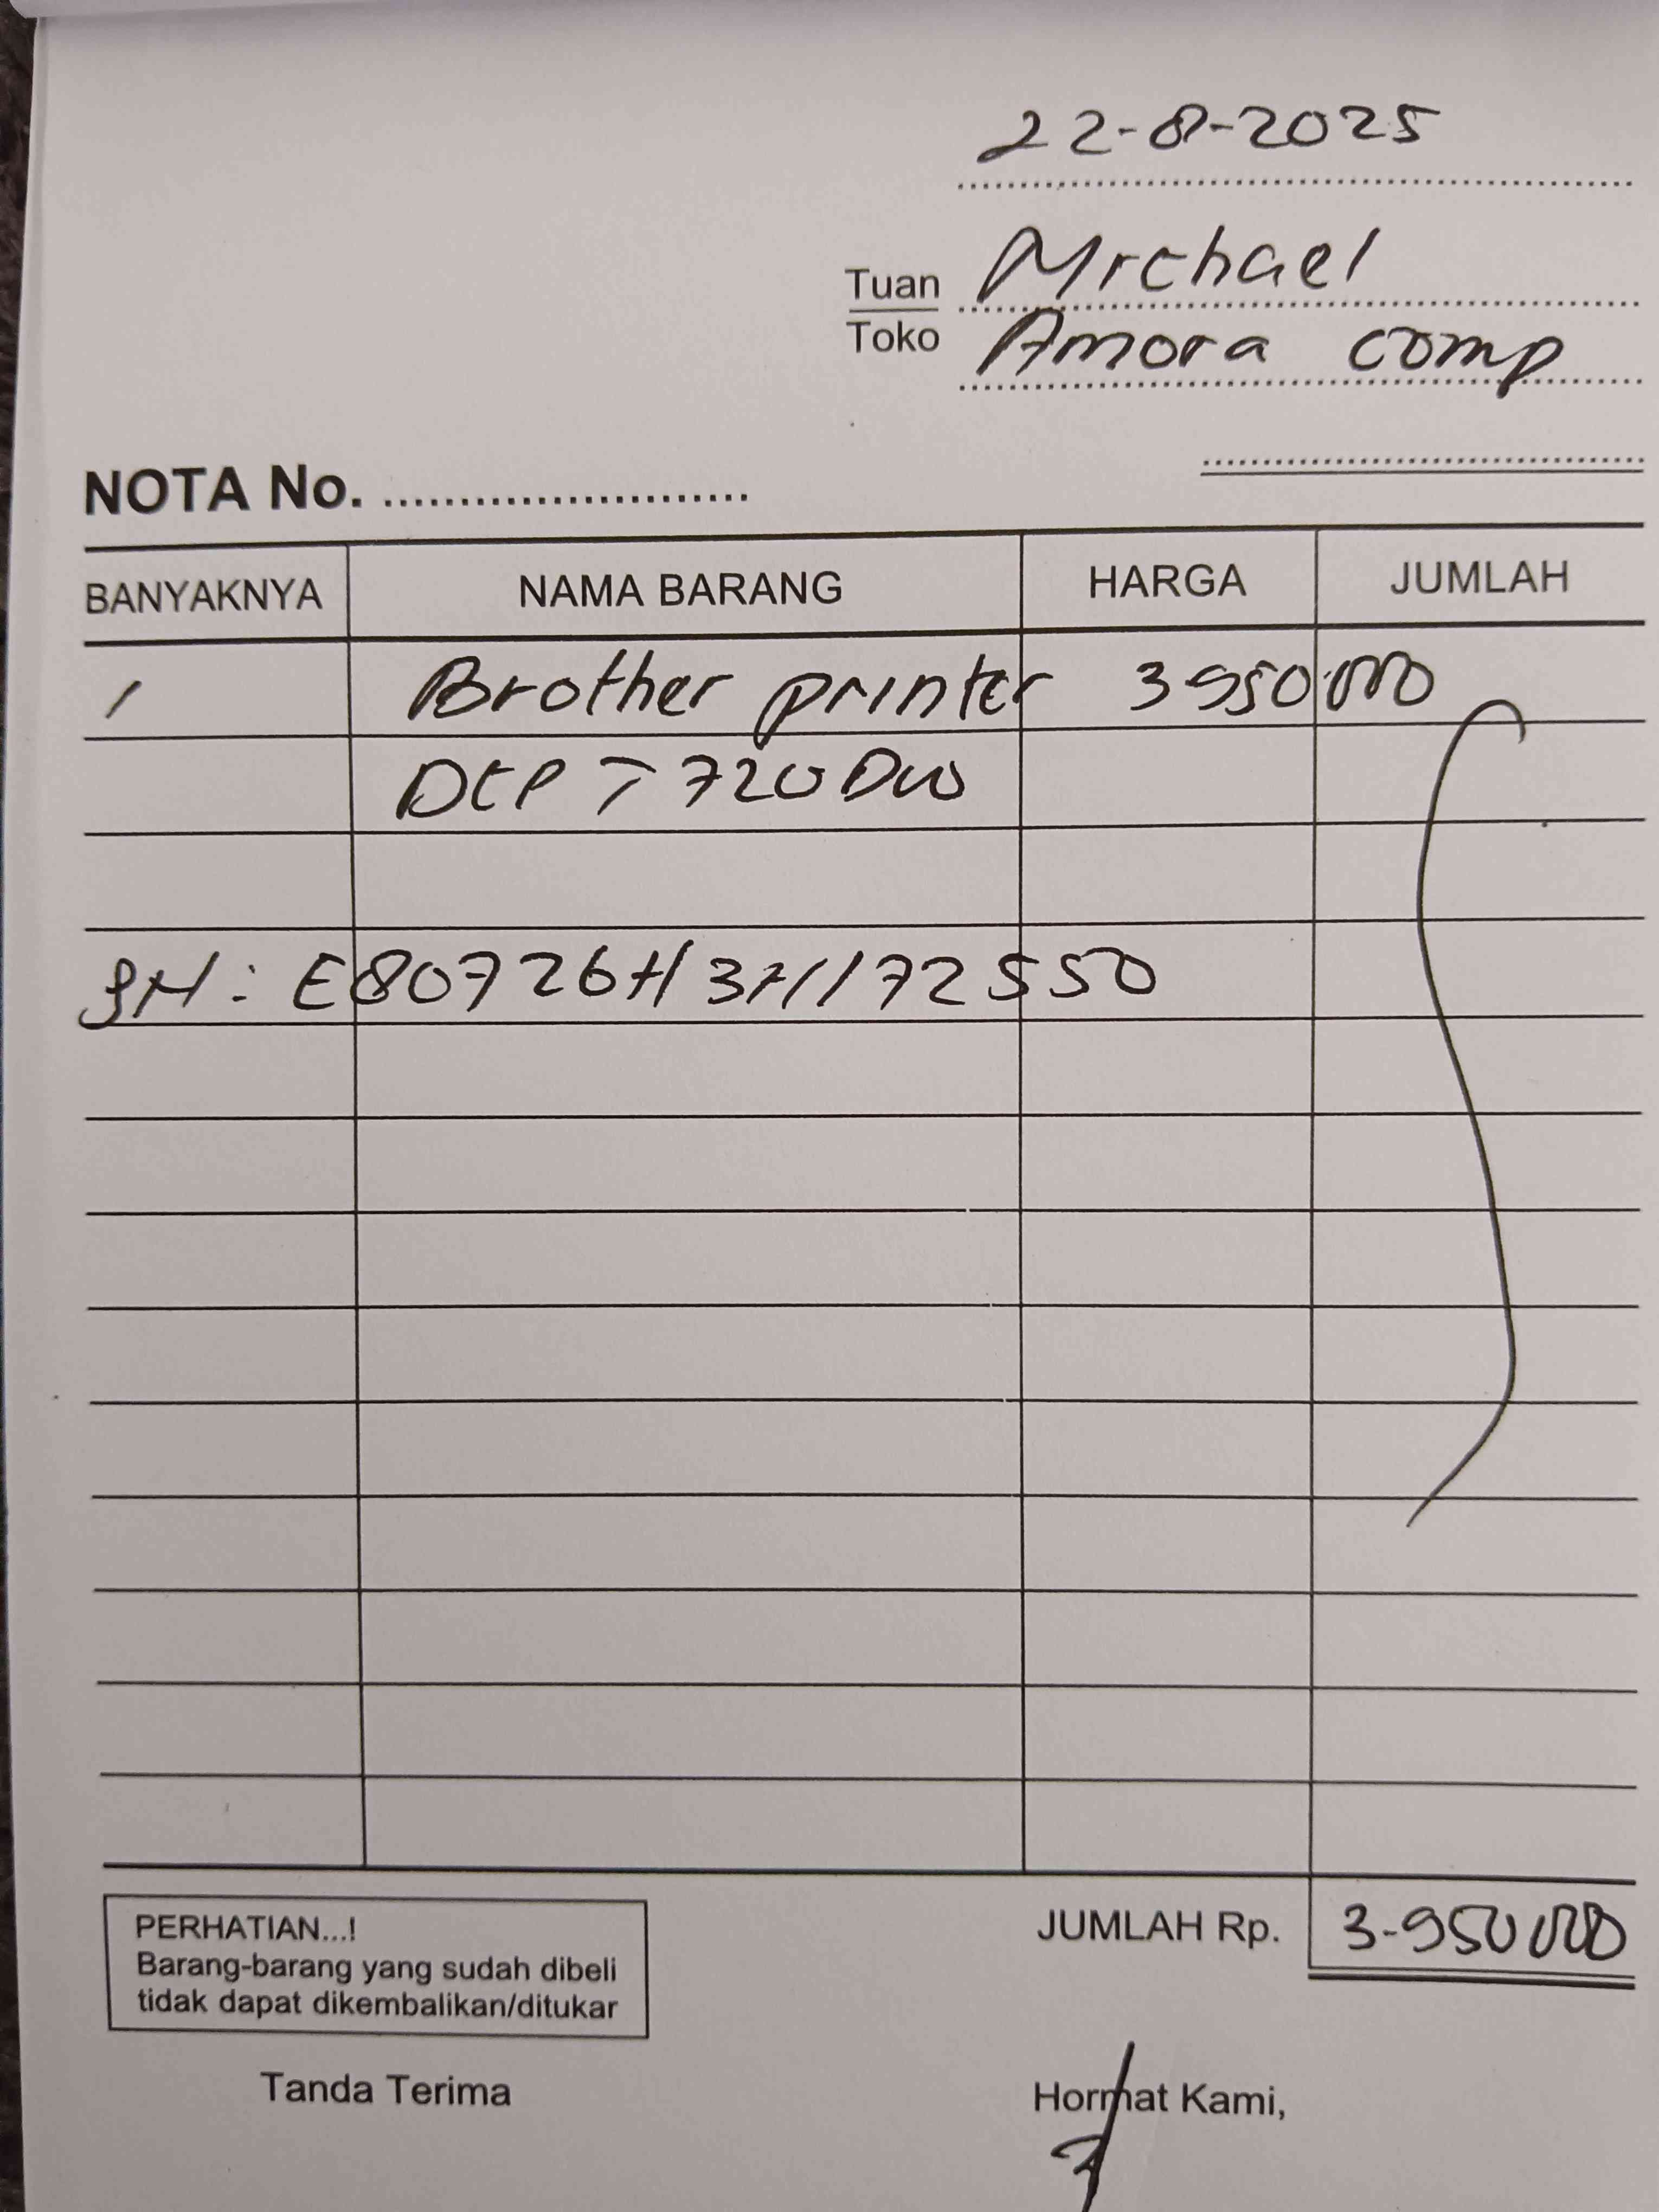 22-8-2025
Tuan Michael
Toko Amora comp
NOTA No. ........................
BANYAKNYA NAMA BARANG HARGA JUMLAH
1 Brother printer 3950000
DCP T 720 DW
SN: E80726H3H172550
JUMLAH Rp. 3-950000
PERHATIAN...!
Barang-barang yang sudah dibeli
tidak dapat dikembalikan/ditukar
Tanda Terima Hormat Kami,